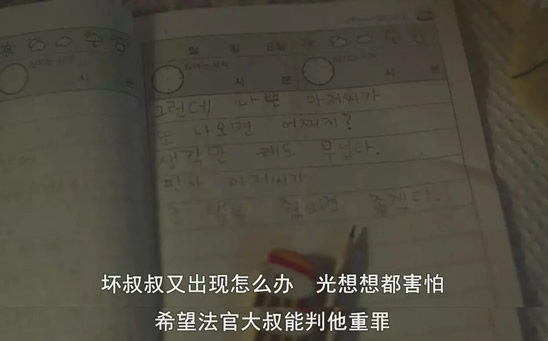 월 일 요일
시 분 시 분
그런데 나쁜 아저씨가
또 나오면 어쩌지?
생각만 해도 무섭다.
판사 아저씨가
벌을 줬으면 좋겠다.
坏叔叔又出现怎么办 光想想都害怕
希望法官大叔能判他重罪